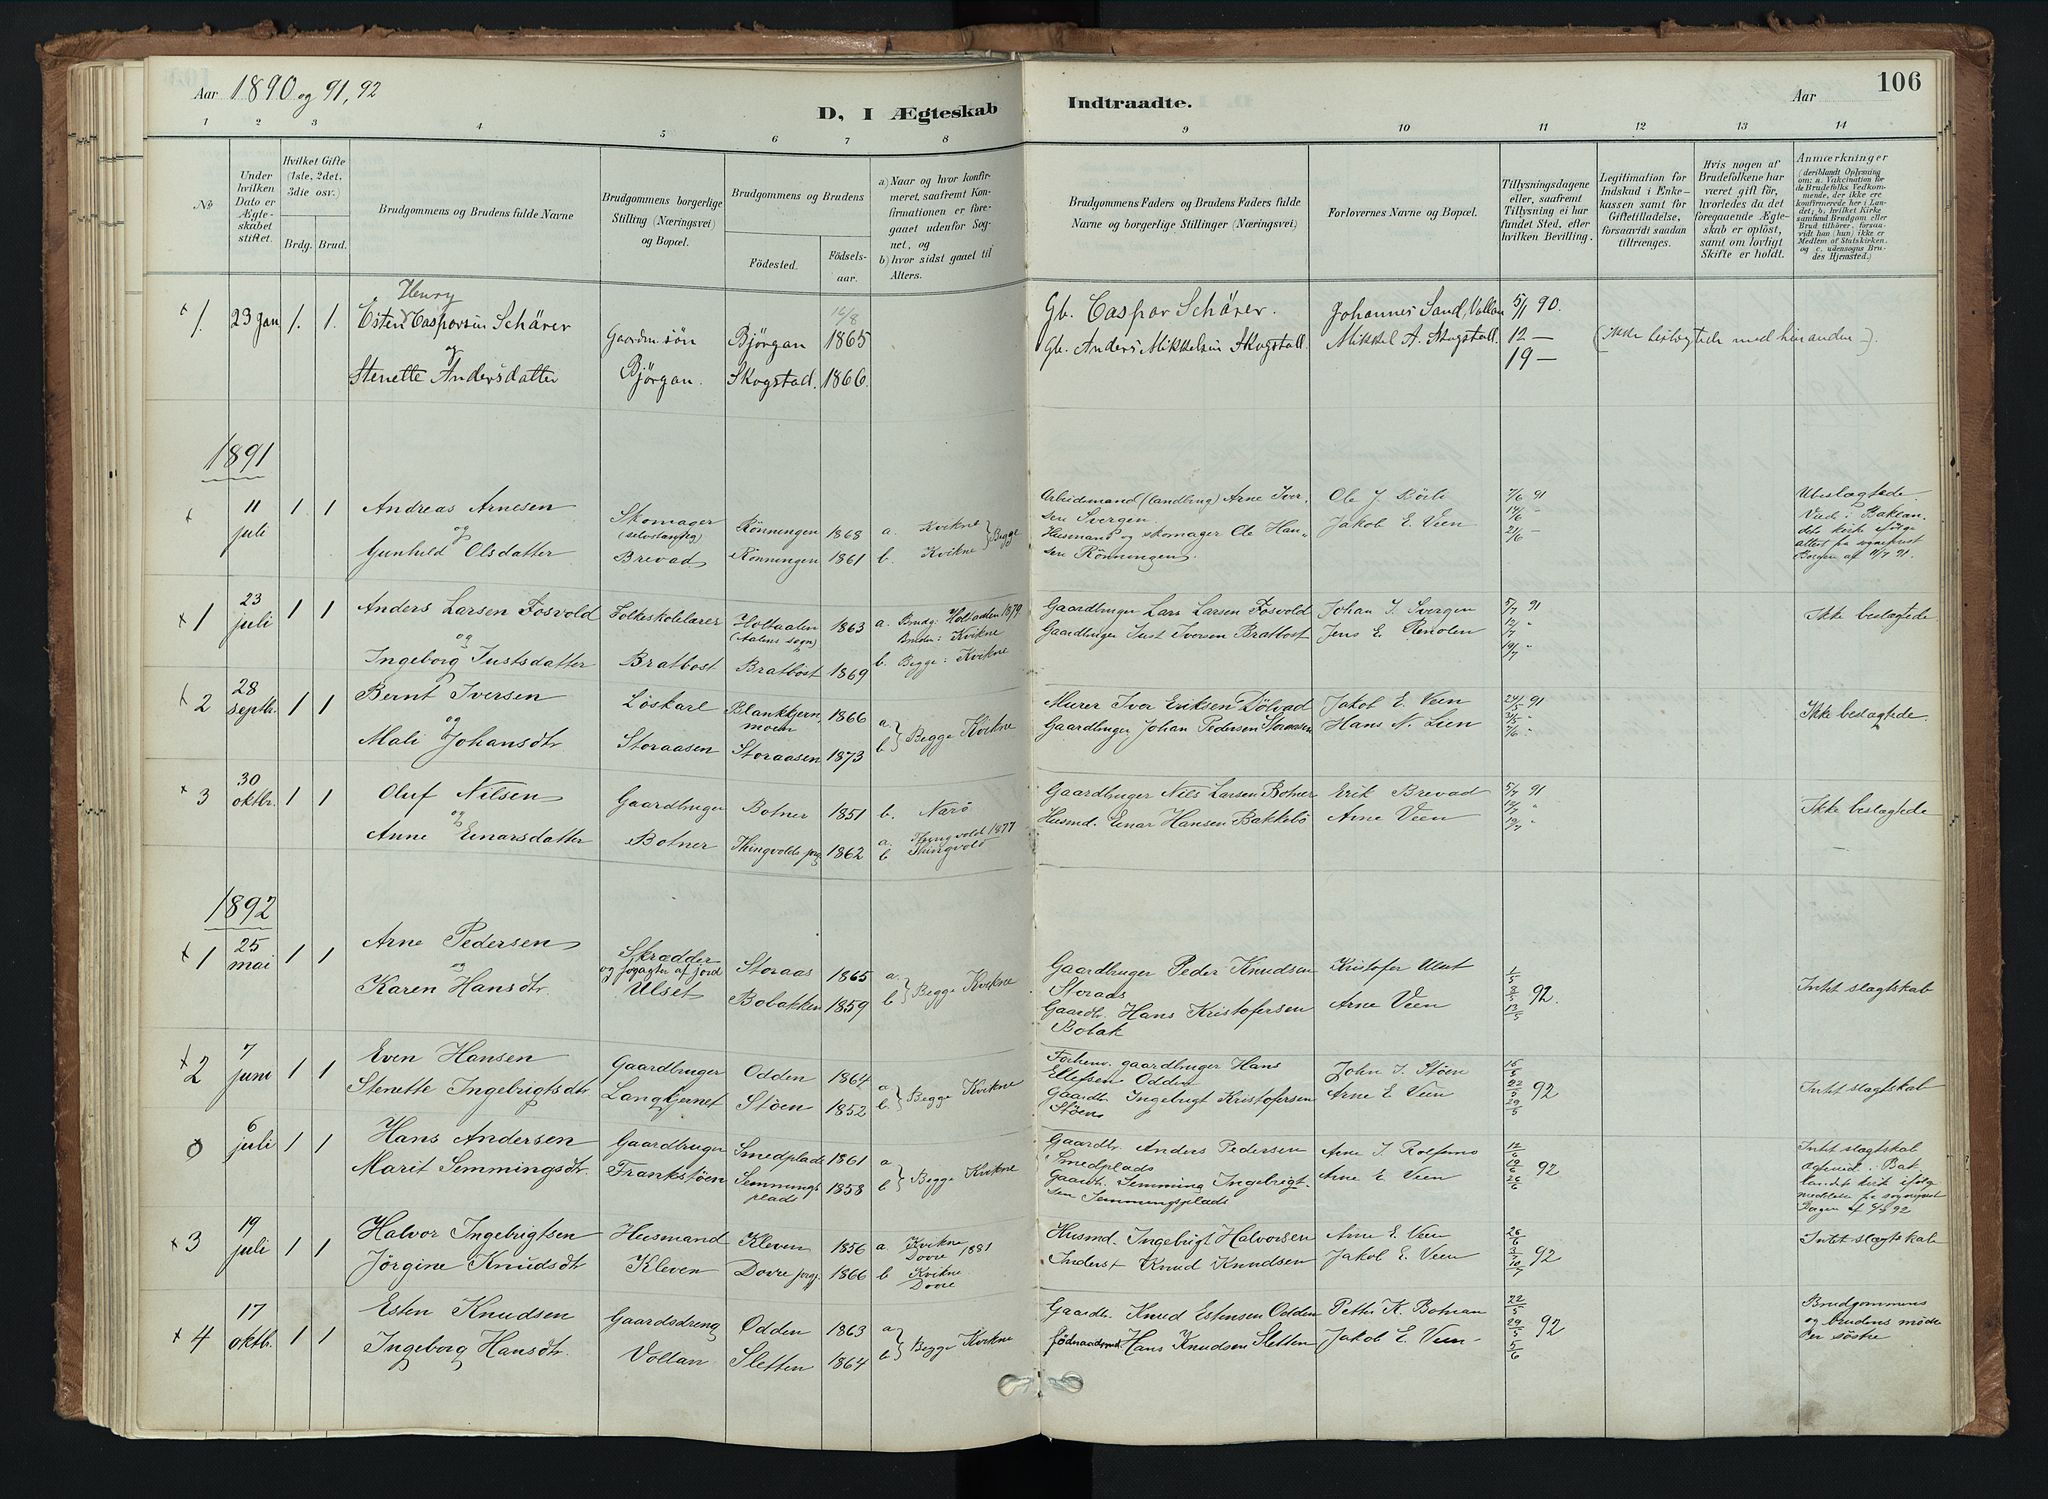 Aar 1890 og 91, 92
D, I Ægteskab Indtraadte.
Aar
106
1 2 3 4 5 6 7 8 9 10 11 12 13 14
No
Under hvilken Dato er Ægteskabet stiftet.
Hvilket Gifte (1ste, 2det, 3die osv.)
Brdg. Brud.
Brudgommens og Brudens fulde Navne
Brudgommens borgerlige Stilling (Næringsvei) og Bopæl.
Brudgommens og Brudens
Fødested.
Fødselsaar.
a) Naar og hvor konfirmeret, saafremt Konfirmationen er foregaaet udenfor Sognet, og
b) hvor sidst gaaet til Alters.
Brudgommens Faders og Brudens Faders fulde Navne og borgerlige Stillinger (Næringsvei)
Forlovernes Navne og Bopæl.
Tillysningsdagene eller, saafremt Tillysning ei har fundet Sted, efter hvilken Bevilling.
Legitimation for Indskud i Enkekassen samt for Giftetilladelse, forsaavidt saadan tiltrænges.
Hvis nogen af Brudefolkene har været gift før, hvorledes da det foregaaende Ægteskab er opløst, samt om lovligt Skifte er holdt.
Anmærkninger (deriblandt Oplysning om: a. Vakcination for de Brudefolks Vedkommende, der ikke ere konfirmerede her i Landet; b. hvilket Kirkesamfund Brudgom eller Brud tilhører, forsaavidt han (hun) ikke er Medlem af Statskirken, og c. udensogns Brudes Hjemsted.)
+ 1. 23 Jan 1. 1. Henry 16/8
Esten Casparsen Schärer Gaardm.søn Bjørgan 1865 Gb. Caspar Schärer. Johannes Sand, Vollan 5/1 90.
og Gb. Anders Mikkelsen Skogstad. Mikkel A. Skogstad. 12 – (ikke beslægtede med hinanden).
Stenette Andersdatter Bjørgan. Skogstad. 1866. 19 –
1891
+ 11 juli 1 1 Andreas Arnesen Skomager (selvstændig) Rønningen 1868 a. Kvikne Begge Arbeidsmand (landling) Arne Iversen Svergen. Ole J. 7/6 91 Ubeslægtede.
og Husmand og skomager Ole Hansen Rønningen. Jakob E. Veen 14/6 – 21/6 – Viede i Baklandets kirke ifølge attest fra sogneprest
Gunhild Olsdatter Brevad Rønningen 1861 b. Kvikne 91.
+ 1 23 juli 1 1 Anders Larsen Fosvold Folkeskolelærer Holtaalen (Aalens sogn) 1863 a. Brudg: Holtaalen 1879 Bruden: Kvikne Gaardbruger Lars Larsen Fosvold Johan J. Svergen 5/7 91 Ikke beslægtede
og Gaardbruger Just Iversen Bratbost Jens E. Renolen 12/7 "
Ingeborg Justsdatter Bratbost Bratbost 1869 b. Begge: Kvikne 19/7 "
+ 2 28 septb. 1 1 Bernt Iversen Løskarl Blankkjernmoen 1866 a. b. Begge Kvikne Murer Iver Eriksen Dølvad Jakob E. Veen 24/5 91 Ikke beslægtede.
og Gaardbruger Johan Pedersen Storaasen Hans N. Lien 31/5 "
Mali Johansdtr Storaasen Storaasen 1873 7/6 "
+ 3 30 oktbr. 1 1 Oluf Nilsen Gaardbruger Botner 1851 b. Narö Gaardbruger Nils Larsen Botner Erik Brevad 5/7 91 Ikke beslægtede
og Husmd. Einar Hansen Bakkebö Arne Veen 12/7 "
Anne Einarsdatter Botner Thingvolds prg. 1862 a. Thingvold 1877 b Thingvold 19/7
1892
+ 1 25 mai 1 1 Arne Pedersen Skrædder og forpagter af jord Storaas 1865 a. b. Begge Kvikne Gaardbruger Peder Knudsen Storaas Kristofer Ulset 1/5
og Gaardbr. Hans Kristofersen Bobak Arne Veen 92. Intet slægtskab
Karen Hansdtr. Ulset Bobakken 1859
+ 2 7 juni 1 1 Even Hansen Gaardbruger Odden 1864 a. b. Begge Kvikne Forhenv. gaardbruger Hans Ellefsen Odden John J. Støen 15/5 22/5 92 Intet slægtskab
Stenette Ingebrigtsdtr Langkjernet Støen 1852 Gaardb. Ingebrigt Kristofersen Støen Arne E Veen 29/5
0 6 juli 1 1 Hans Andersen Gaardbruger Smedplads 1861 a b Begge Kvikne Gaardbr. Anders Pedersen Smedplads Arne J. 12/6 19/6 92 Intet slægtskab
Marit Semmingsdtr. Frankstøen Semmingsplads 1858 Gaardb. Semming Ingebrigtsen Semmingsplads Arne E Veen 26/6 Baklandets kirk ifølge meddelelse fra sogneprest 92
+ 3 19 juli 1 1 Halvor Ingebrigtsen Husmand Kleven 1856 a Kvikne Dovre 1881 Husmd. Ingebrigt Halvorsen Arne E. Veen 26/6 Intet slægtskab
Jörgine Knudsdtr Kleven Dovre prg. 1866 b Kvikne Dovre Inderst Knud Knudsen Jakob E. Veen 3/7 10/7 92
+ 4 17 oktbr. 1 1 Esten Knudsen Gaardsdreng Odden 1863 a b Begge Kvikne Gaardb. Knud Estensen Odden Petter K. Botnan 22/5 29/5 92 Brudgommens og brudens mødre er søstre
Ingeborg Hansdtr. Vollan Sletten 1864 Hans Knudsen Sletten Jakob E. Veen 5/6